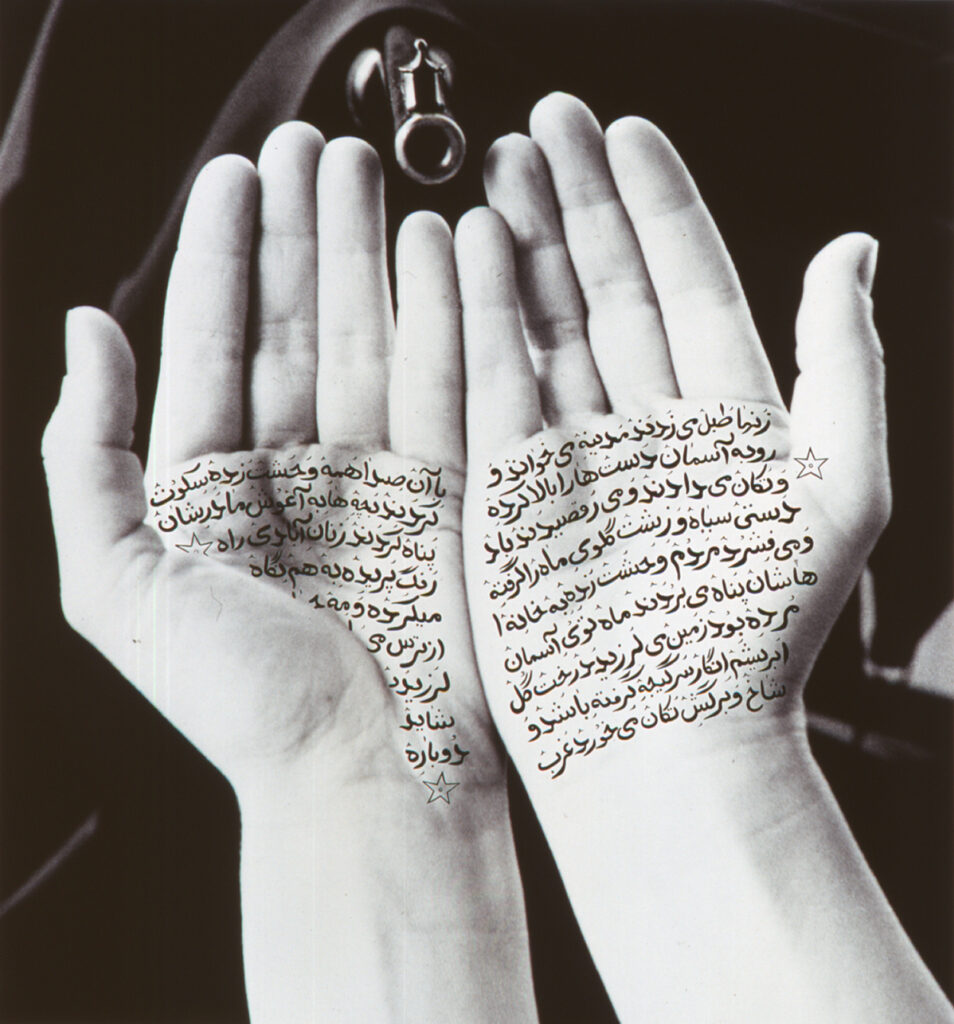 زنها طبل می زدند مدینه می خواند و
رو به آسمان دست ها را بالا کرده
و تکان می دادند و می رقصیدند باد
دستی سیاه و زشت گلوی ماه را گرفته
و می فشرد مردم وحشت زده به خانه
هاشان پناه می بردند ماه توی آسمان
مرده بود زمین می لرزید درخت گل
ابریشم انگار سرگیجه گرفته باشد و
شاخ و برگش تکان می خورد غرب
با آن صدا همه وحشت زده سکوت
کردند بچه ها به آغوش مادرشان
پناه بردند زنان آبادی راه
رنگ پریده به هم نگاه
میکرده و مه
از ترس می
شاید
دوباره